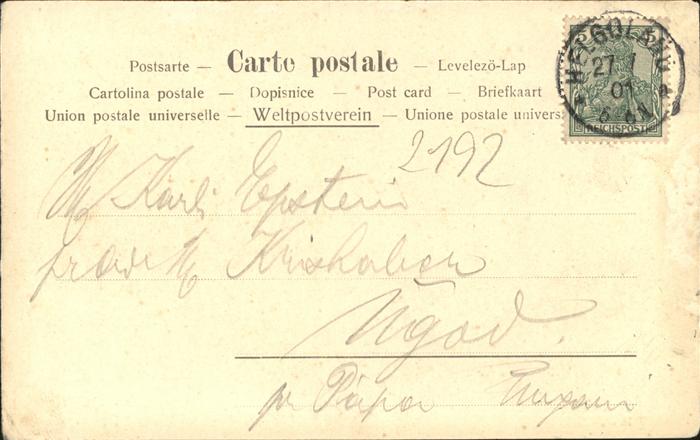 Postsarte — Carte postale — Levelezö-Lap
Cartolina postale — Dopisnice — Post card — Briefkaart
Union postale universelle — Weltpostverein — Unione postale univers
HELGOLAND
27. 7
01
a
REICHSPOST
2192
Karl Epstein
Krishaber
Ugod.
pr Pápa Ungarn